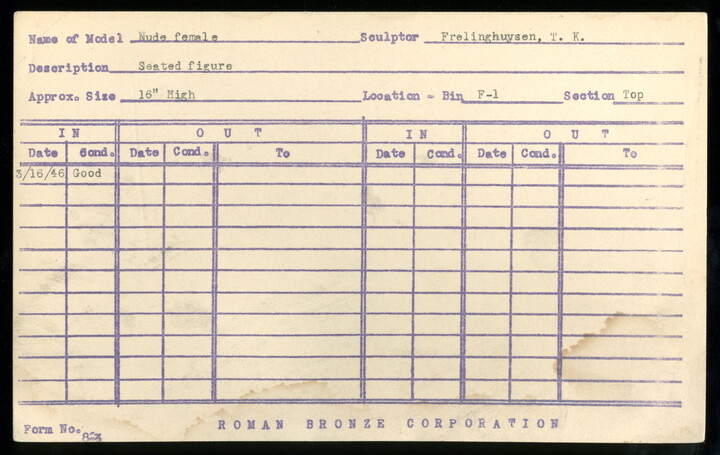 Name of Model Nude female Sculptor Frelinghuysen, T. K.
Description Seated figure
Approx. Size 16" High Location - Bin F-1 Section Top
IN OUT IN OUT
Date Cond. Date Cond. To Date Cond. Date Cond. To
3/16/46 Good
Form No. 823 ROMAN BRONZE CORPORATION